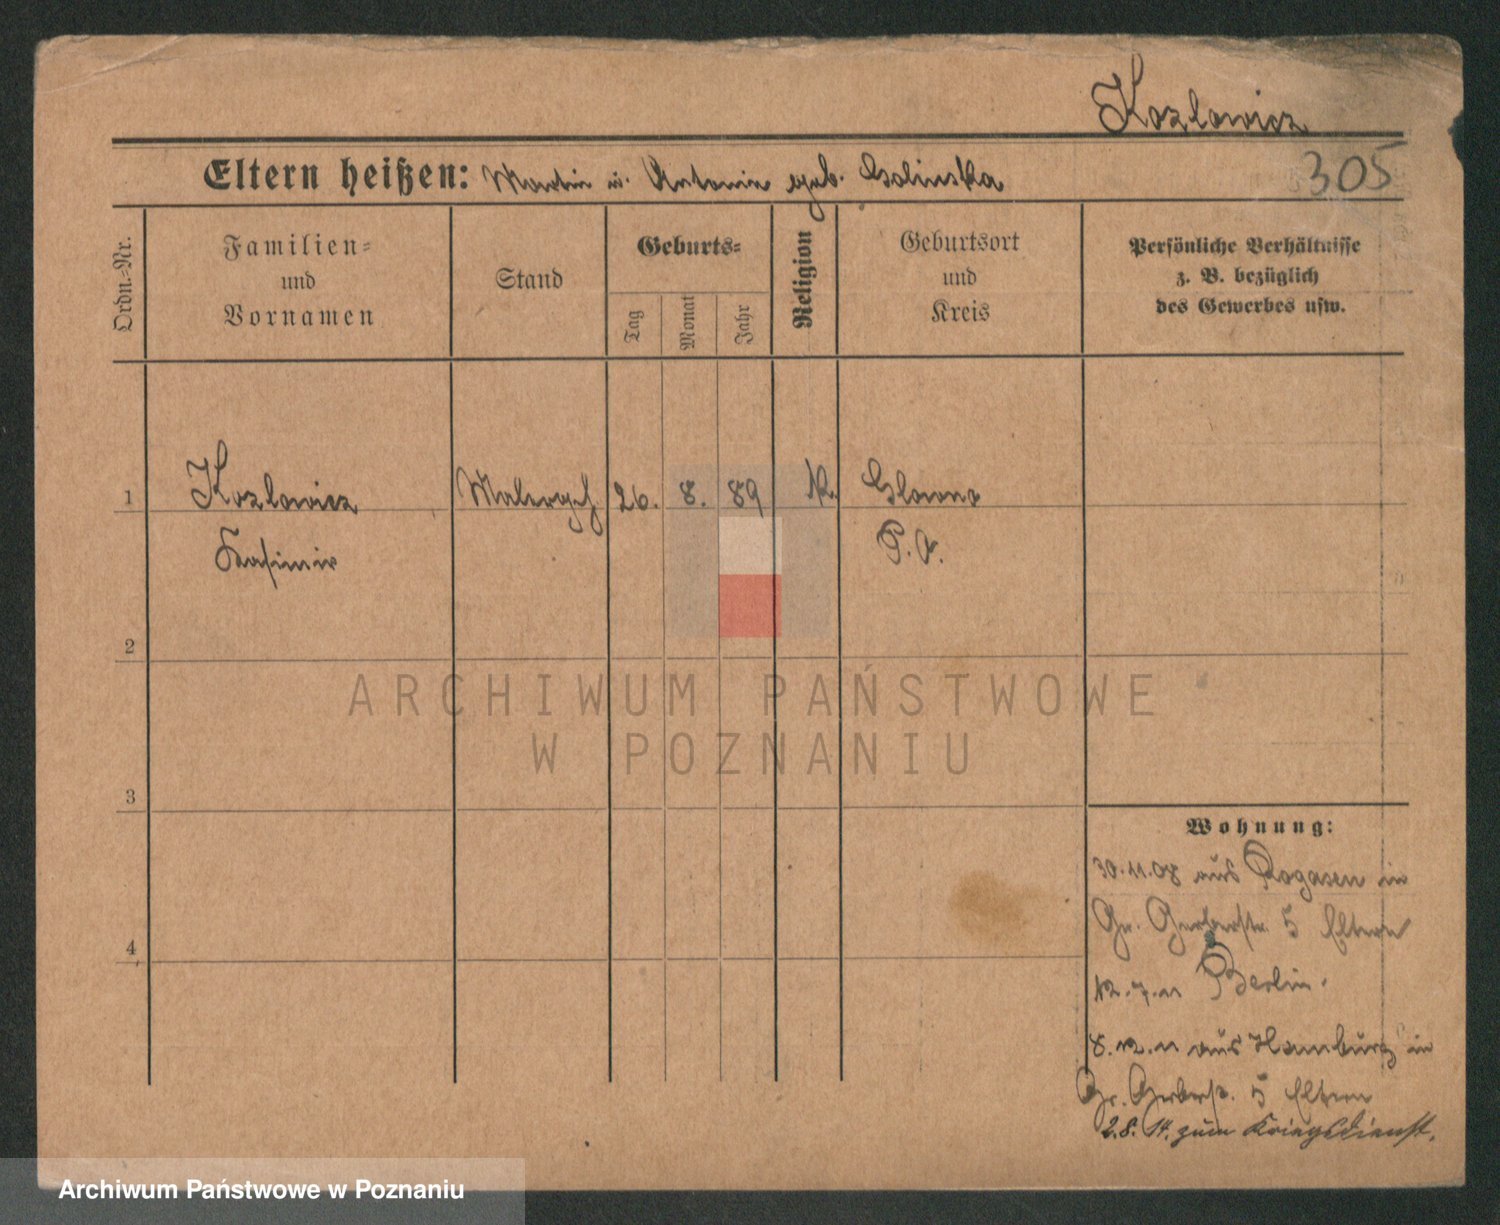 Kozlowicz
Eltern heißen: Martin u. Antonie geb. Golinska
305
Ordn.=Nr.
Familien=
und
Vornamen
Stand
Geburts=
Tag
Monat
Jahr
Religion
Geburtsort
und
Kreis
Persönliche Verhältnisse
z. B. bezüglich
des Gewerbes usw.
1 Kozlowicz Malergeh. 26. 8. 89 k. Glowno
Kasimir P. O.
2
ARCHIWUM PAŃSTWOWE
W POZNANIU
3
Wohnung:
30.11.08 aus Rogasen in
Gr. Gerberstr. 5 Eltern
4
12.7.11 Berlin.
8.12.11 aus Hamburg in
Gr. Gerberstr. 5 Eltern
2.8.14. zum Kriegsdienst.
Archiwum Państwowe w Poznaniu